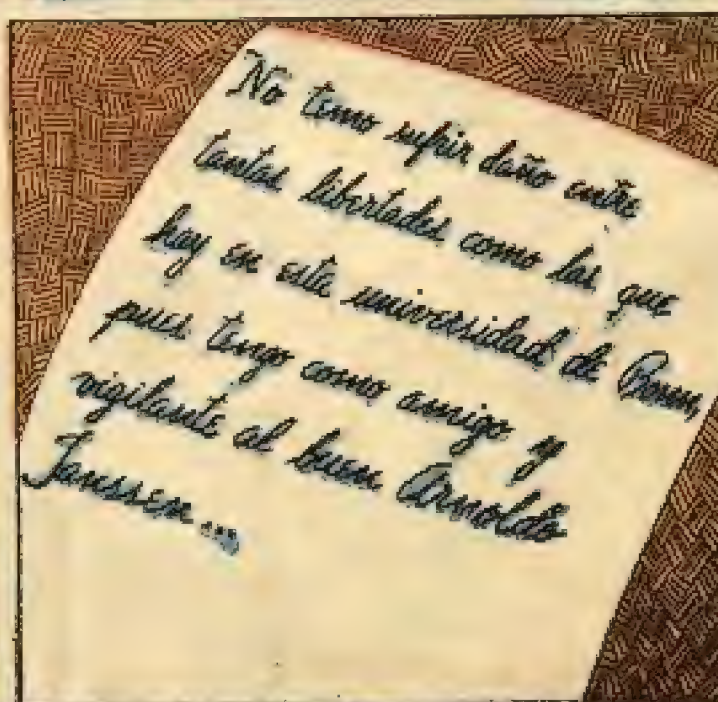 No temo sufrir daño entre
tantas libertades como las que
hay en esta universidad de Bonn,
pues tengo como amigo y
vigilante al buen Arnoldo
Janssen...